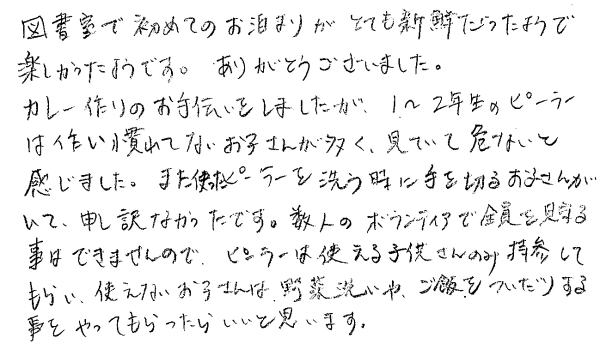 図書室で初めてのお泊まりがとても新鮮だったようで
楽しかったようです。ありがとうございました。
カレー作りのお手伝いをしましたが、1〜2年生のピーラー
は使い慣れてないお子さんが多く、見ていて危ないと
感じました。また使ったピーラーを洗う時に手を切るお子さんが
いて、申し訳なかったです。数人のボランティアで全員を見守る
事はできませんので、ピーラーは使える子供さんのみ持参して
もらい、使えないお子さんは野菜洗いや、ご飯をついだりする
事をやってもらったらいいと思います。